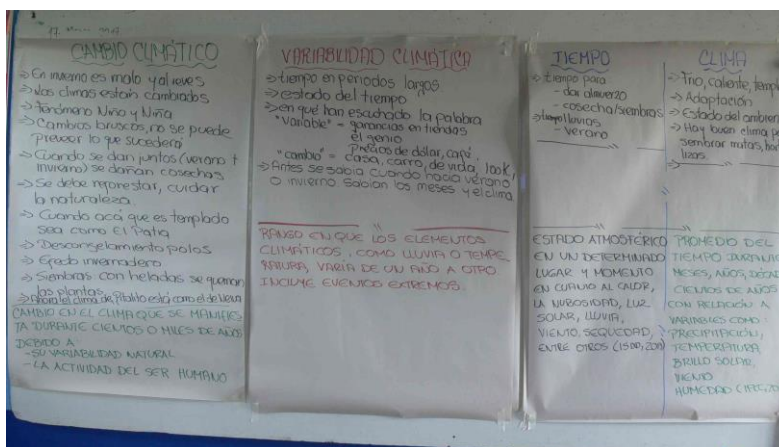 CAMBIO CLIMÁTICO
⇒ En invierno es malo y al revés
⇒ Los climas están cambiados
⇒ Fenómeno Niño y Niña
⇒ Cambios bruscos, no se puede
preveer lo que sucederá
⇒ Cuando se dan juntos (verano +
invierno) se dañan cosechas
⇒ Se debe reforestar, cuidar
la naturaleza.
⇒ Cuando acá que es templado
sea como El Patía
⇒ Descongelamiento polos
⇒ Efecto invernadero
⇒ Siembras con heladas se queman
las plantas.
⇒ Ahora el clima de Pitalito está como el de Neiva
CAMBIO EN EL CLIMA QUE SE MANIFIES
TA DURANTE CIENTOS O MILES DE AÑOS
DEBIDO A:
- SU VARIABILIDAD NATURAL
- LA ACTIVIDAD DEL SER HUMANO
VARIABILIDAD CLIMÁTICA
⇒ tiempo en periodos largos
⇒ estado del tiempo
⇒ en qué han escuchado la palabra
"variable" = ganancias en tiendas
el genio
precios de dólar, café.
"cambio" = casa, carro, de vida, look,
⇒ Antes se sabía cuando hacía verano
o invierno sabían los meses y el clima
RANGO EN QUE LOS ELEMENTOS
CLIMÁTICOS, COMO LLUVIA O TEMPE
RATURA, VARÍA DE UN AÑO A OTRO.
INCLUYE EVENTOS EXTREMOS.
TIEMPO
⇒ tiempo para
- dar almuerzo
- cosecha/siembras
⇒ tiempo lluvias
- verano
ESTADO ATMOSFÉRICO
EN UN DETERMINADO
LUGAR Y MOMENTO
EN CUANTO AL CALOR,
LA NUBOSIDAD, LUZ
SOLAR, LLUVIA,
VIENTO, SEQUEDAD,
ENTRE OTROS
CLIMA
⇒ frío, caliente, temp
⇒ Adaptación
⇒ Estado del ambien
⇒ Hay buen clima pa
sembrar matas, hor
lizas.
⇒
PROMEDIO DEL
TIEMPO DURANTE
MESES, AÑOS, DÉCAD
CIENTOS DE AÑOS
CON RELACIÓN A
VARIABLES COMO:
PRECIPITACIÓN,
TEMPERATURA,
BRILLO SOLAR,
VIENTO
HUMEDAD (IPCC, 20